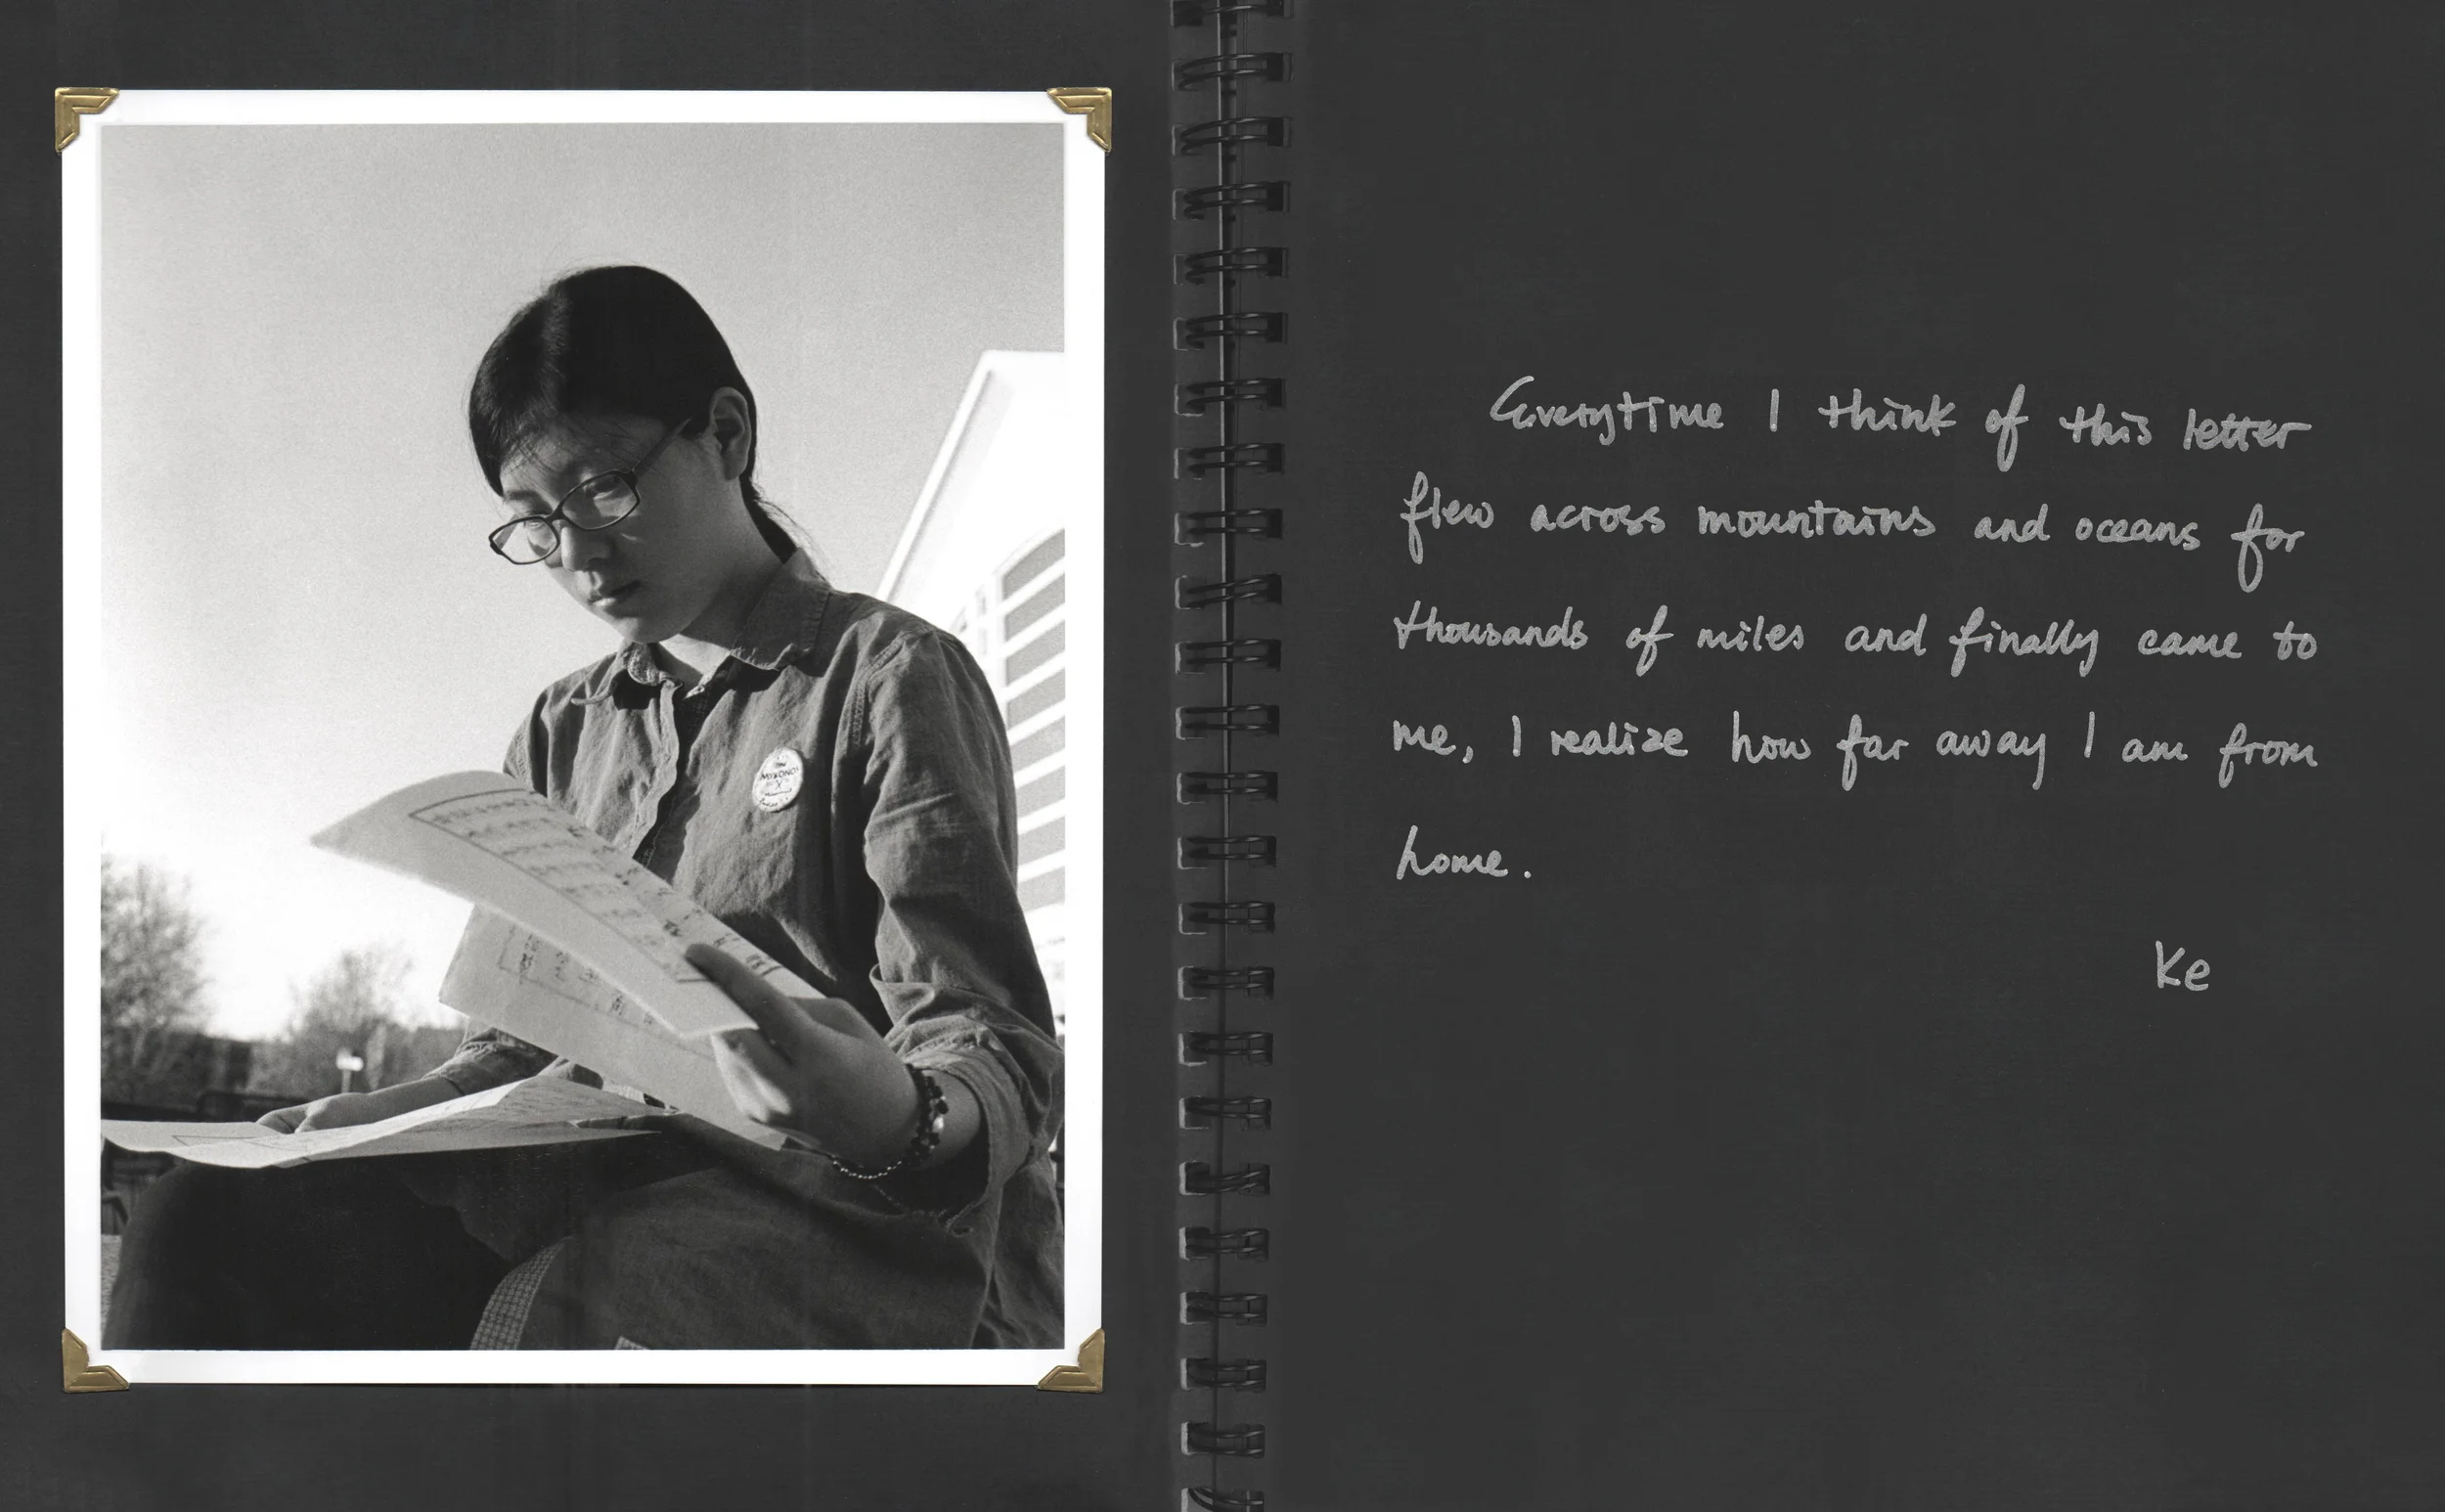 MYKONOS
Everytime I think of this letter
flew across mountains and oceans for
thousands of miles and finally came to
me, I realize how far away I am from
home.
Ke